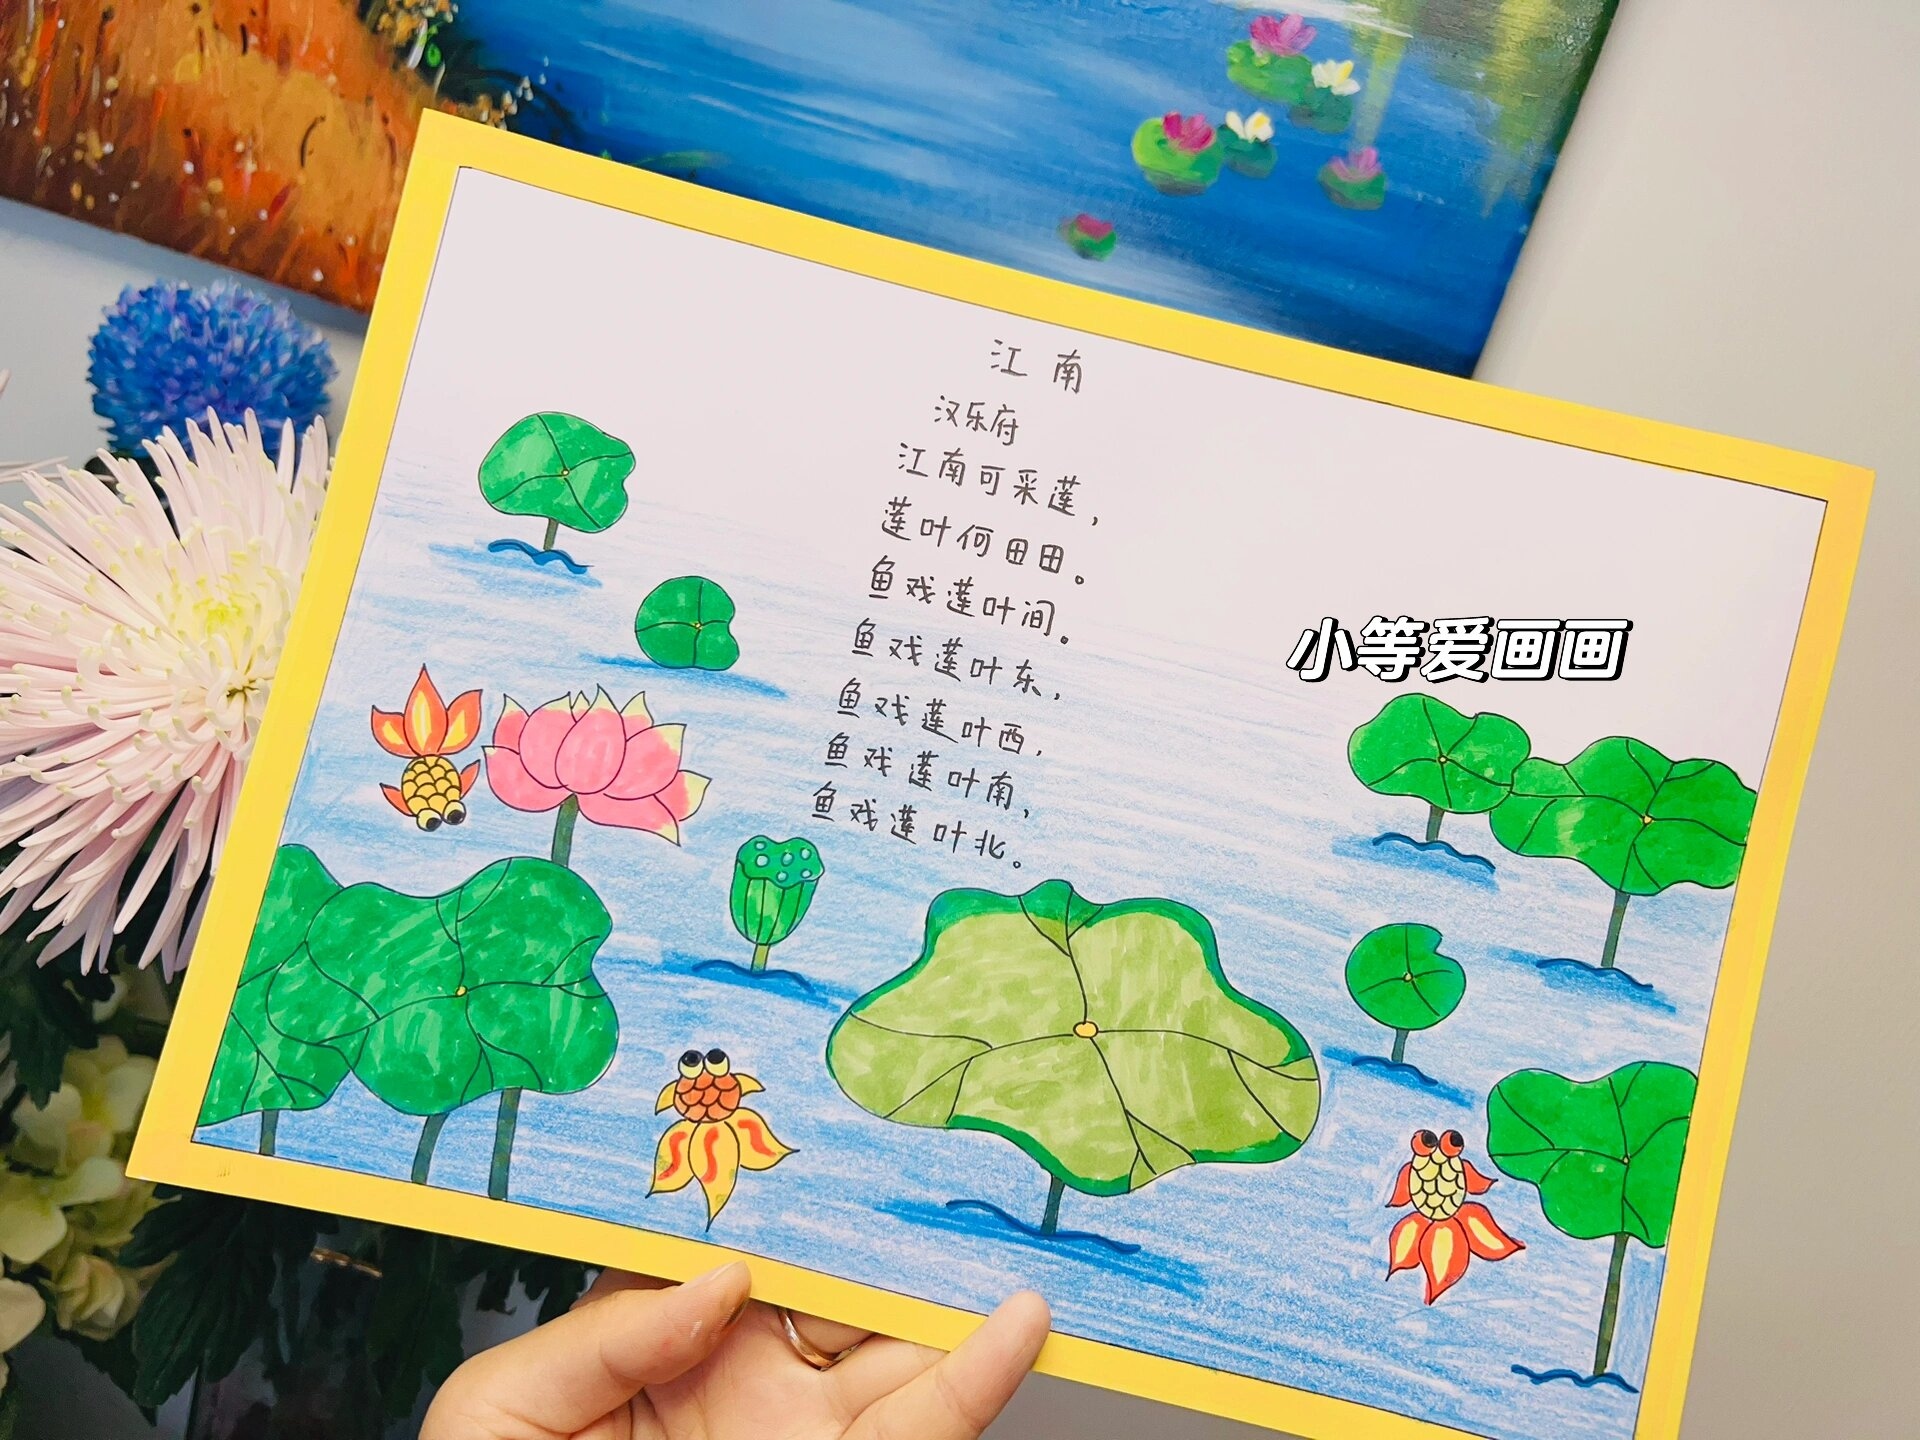 江南
汉乐府
江南可采莲，
莲叶何田田。
鱼戏莲叶间。
鱼戏莲叶东，
鱼戏莲叶西，
鱼戏莲叶南，
鱼戏莲叶北。
小等爱画画